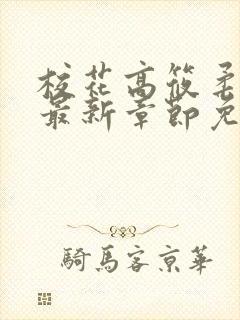 校花高筱柔
最新章節免
騎馬客京華